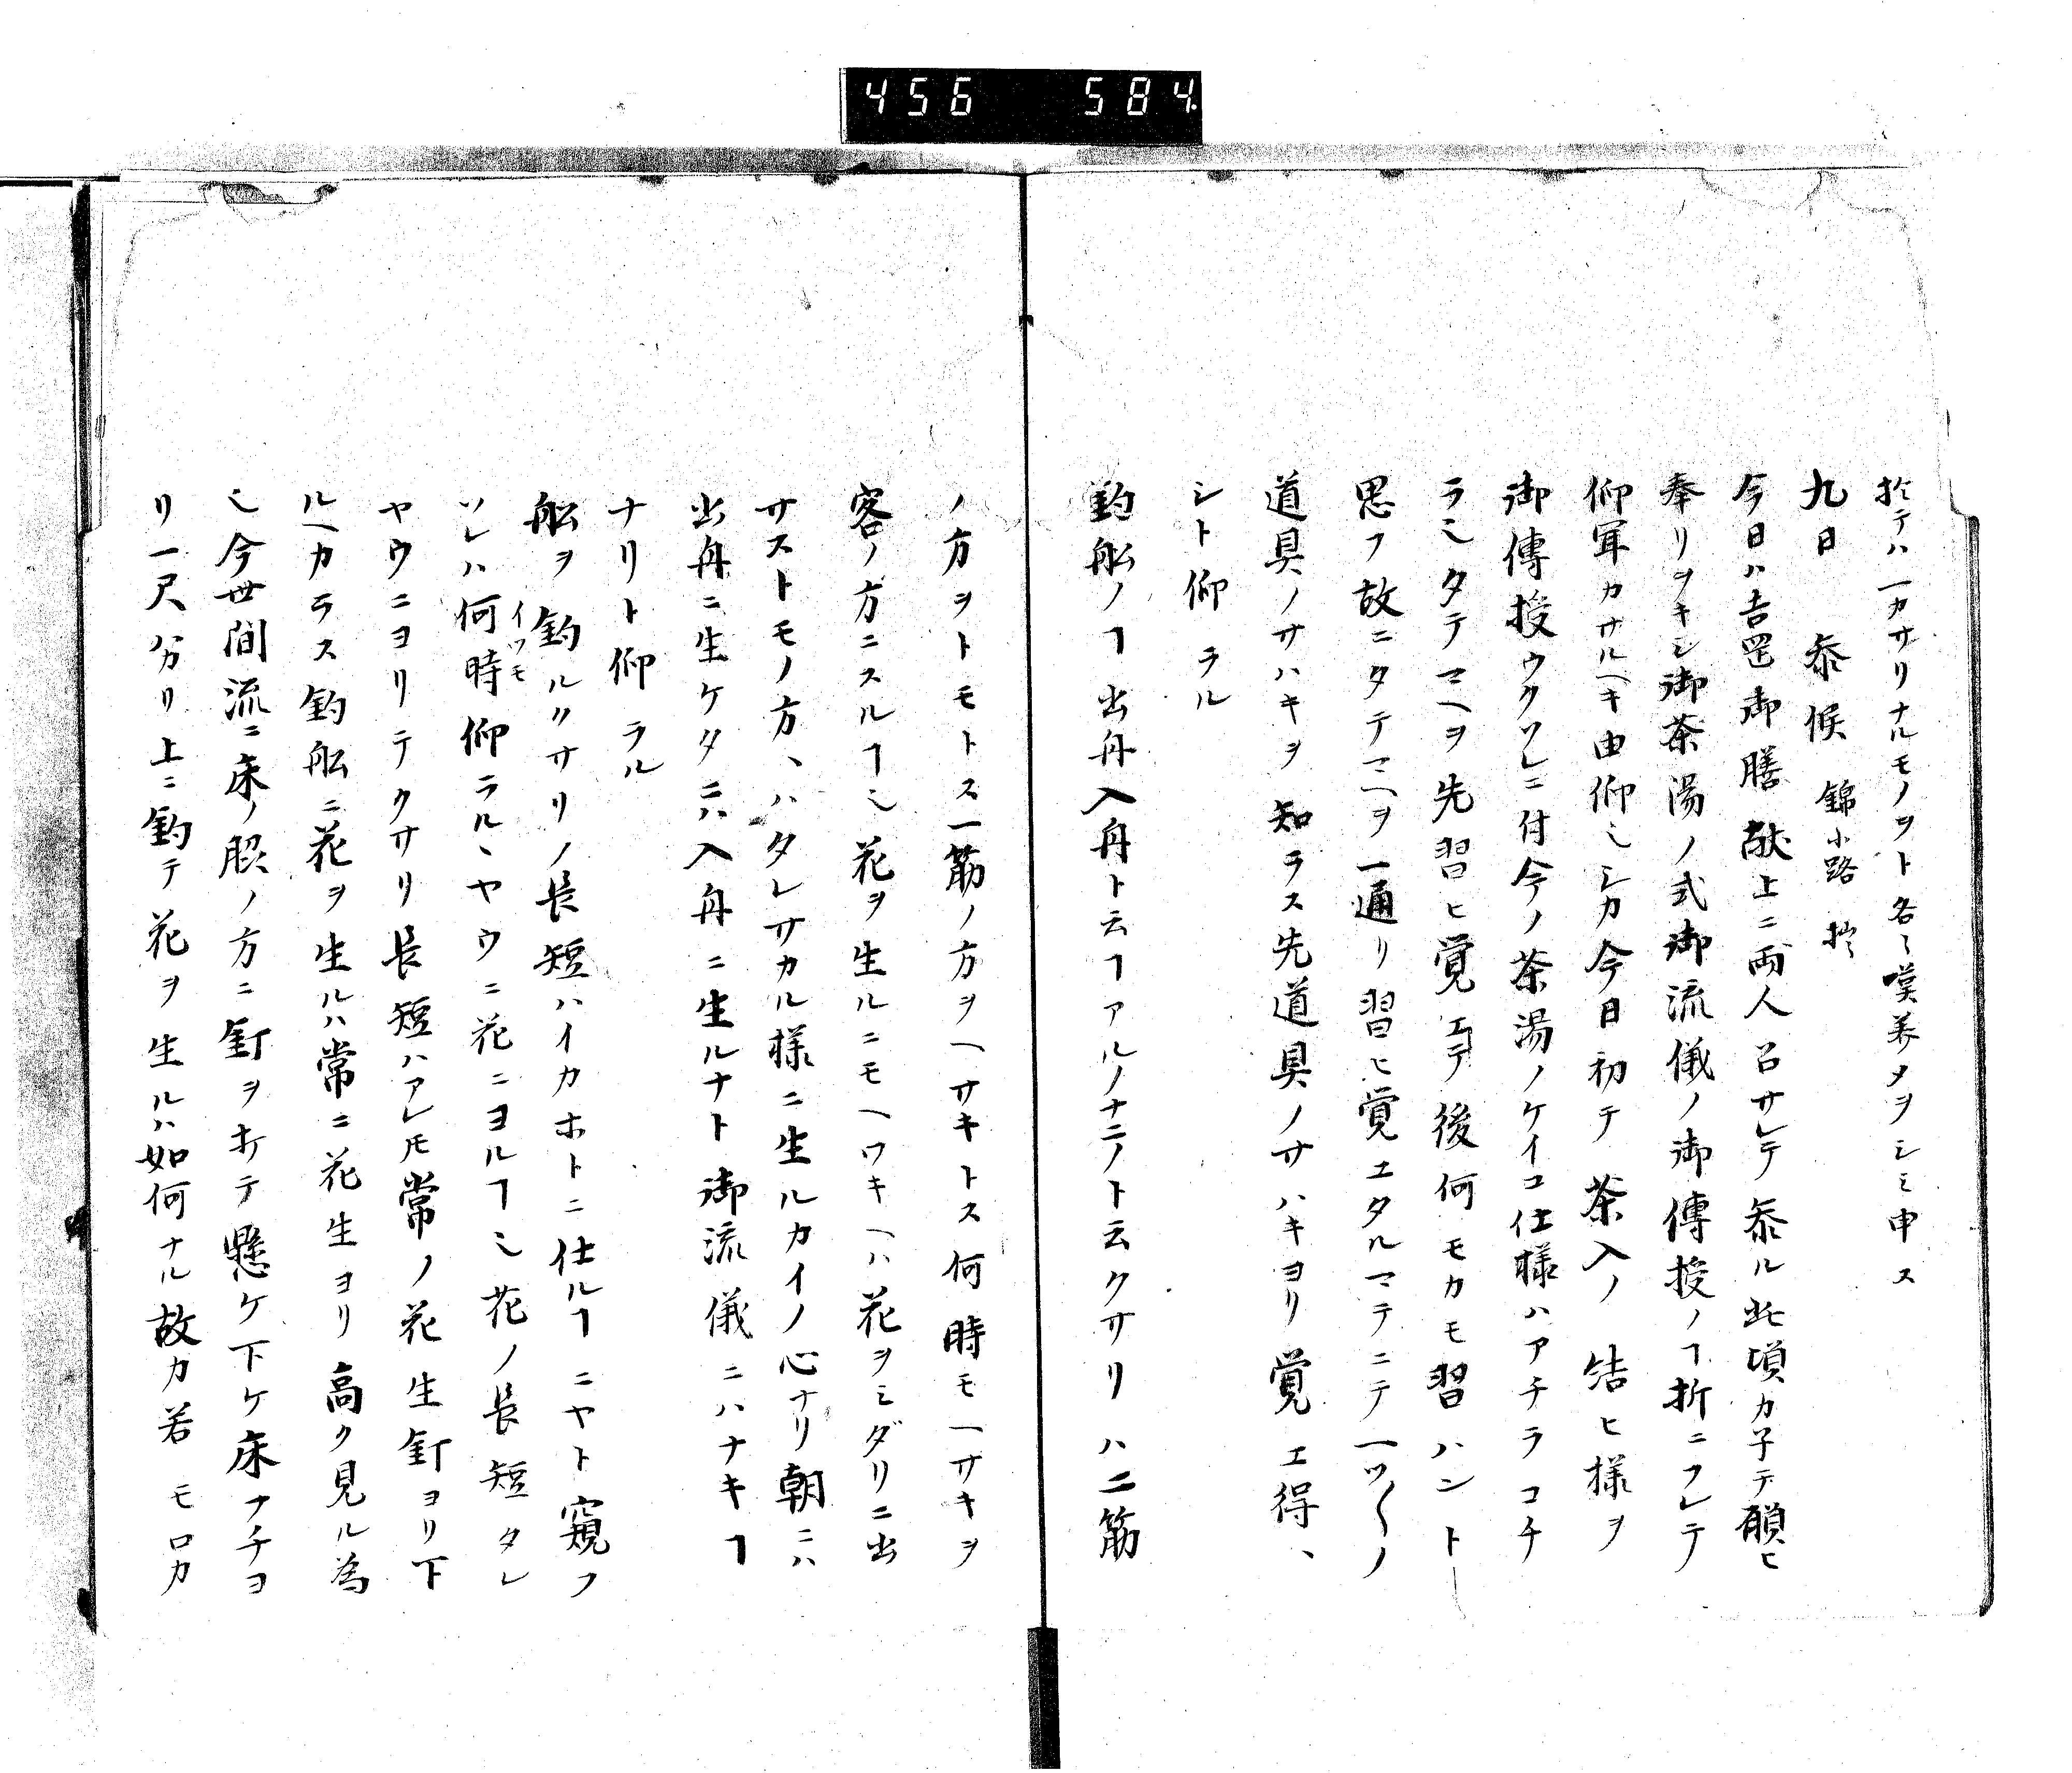 456 584
於テハ一カサリナルモノヲト各〻嘆美タヲシミ申ス
九日 参候 錦小路 於
今日ハ吉岡御膳献上ニ両人召サレテ参ル此頃カ子テ願ヒ
奉リヲキシ御茶湯ノ式御流儀ノ御傳授ノヿ折ニフレテ
仰聞カサルヘキ由仰ミシカ今日初テ茶入ノ結ヒ様ヲ
御傳授ウクソレニ付今ノ茶湯ノケイコ仕様ハアチラコチ
ラ乄タテマヘヲ先習ヒ覚エテ後何モカモ習ハント
思フ故ニタテマヘヲ一通リ習ヒ覚エタルマテニテ一ツ〱ノ
道具ノサハキヲ知ラス先道具ノサハキヨリ覚エ得、
シト仰ラル
釣船ノヿ出舟入舟ト云ヿアルノナニノト云クサリハ二筋
ノ方ヲトモトス一筋ノ方ヲヘサキトス何時モヘサキヲ
客ノ方ニスルヿ也花ヲ生ルニモヘワキヘハ花ヲミダリニ出
サストモノ方、ハタレサカル様ニ生ルカイノ心ナリ朝ニハ
出舟ニ生ケタニハ入舟ニ生ルナト御流儀ニハナキヿ
ナリト仰ラル
船ヲ釣ルクサリノ長短ハイカホトニ仕ルヿニヤト窺フ
ソレハ何時イツモ仰ラルヽヤウニ花ニヨルヿ也花ノ長短タレ
ヤウニヨリテクサリ長短ハアレ𪜈常ノ花生釘ヨリ下
ルヘカラス釣船ニ花ヲ生ルハ常ニ花生ヨリ高ク見ル為
也今世間流ニ床ノ脇ノ方ニ釘ヲ打テ懸ケ下ケ床フチヨ
リ一尺ハカリ上ニ釣テ花ヲ生ルハ如何ナル故カ若モロカ